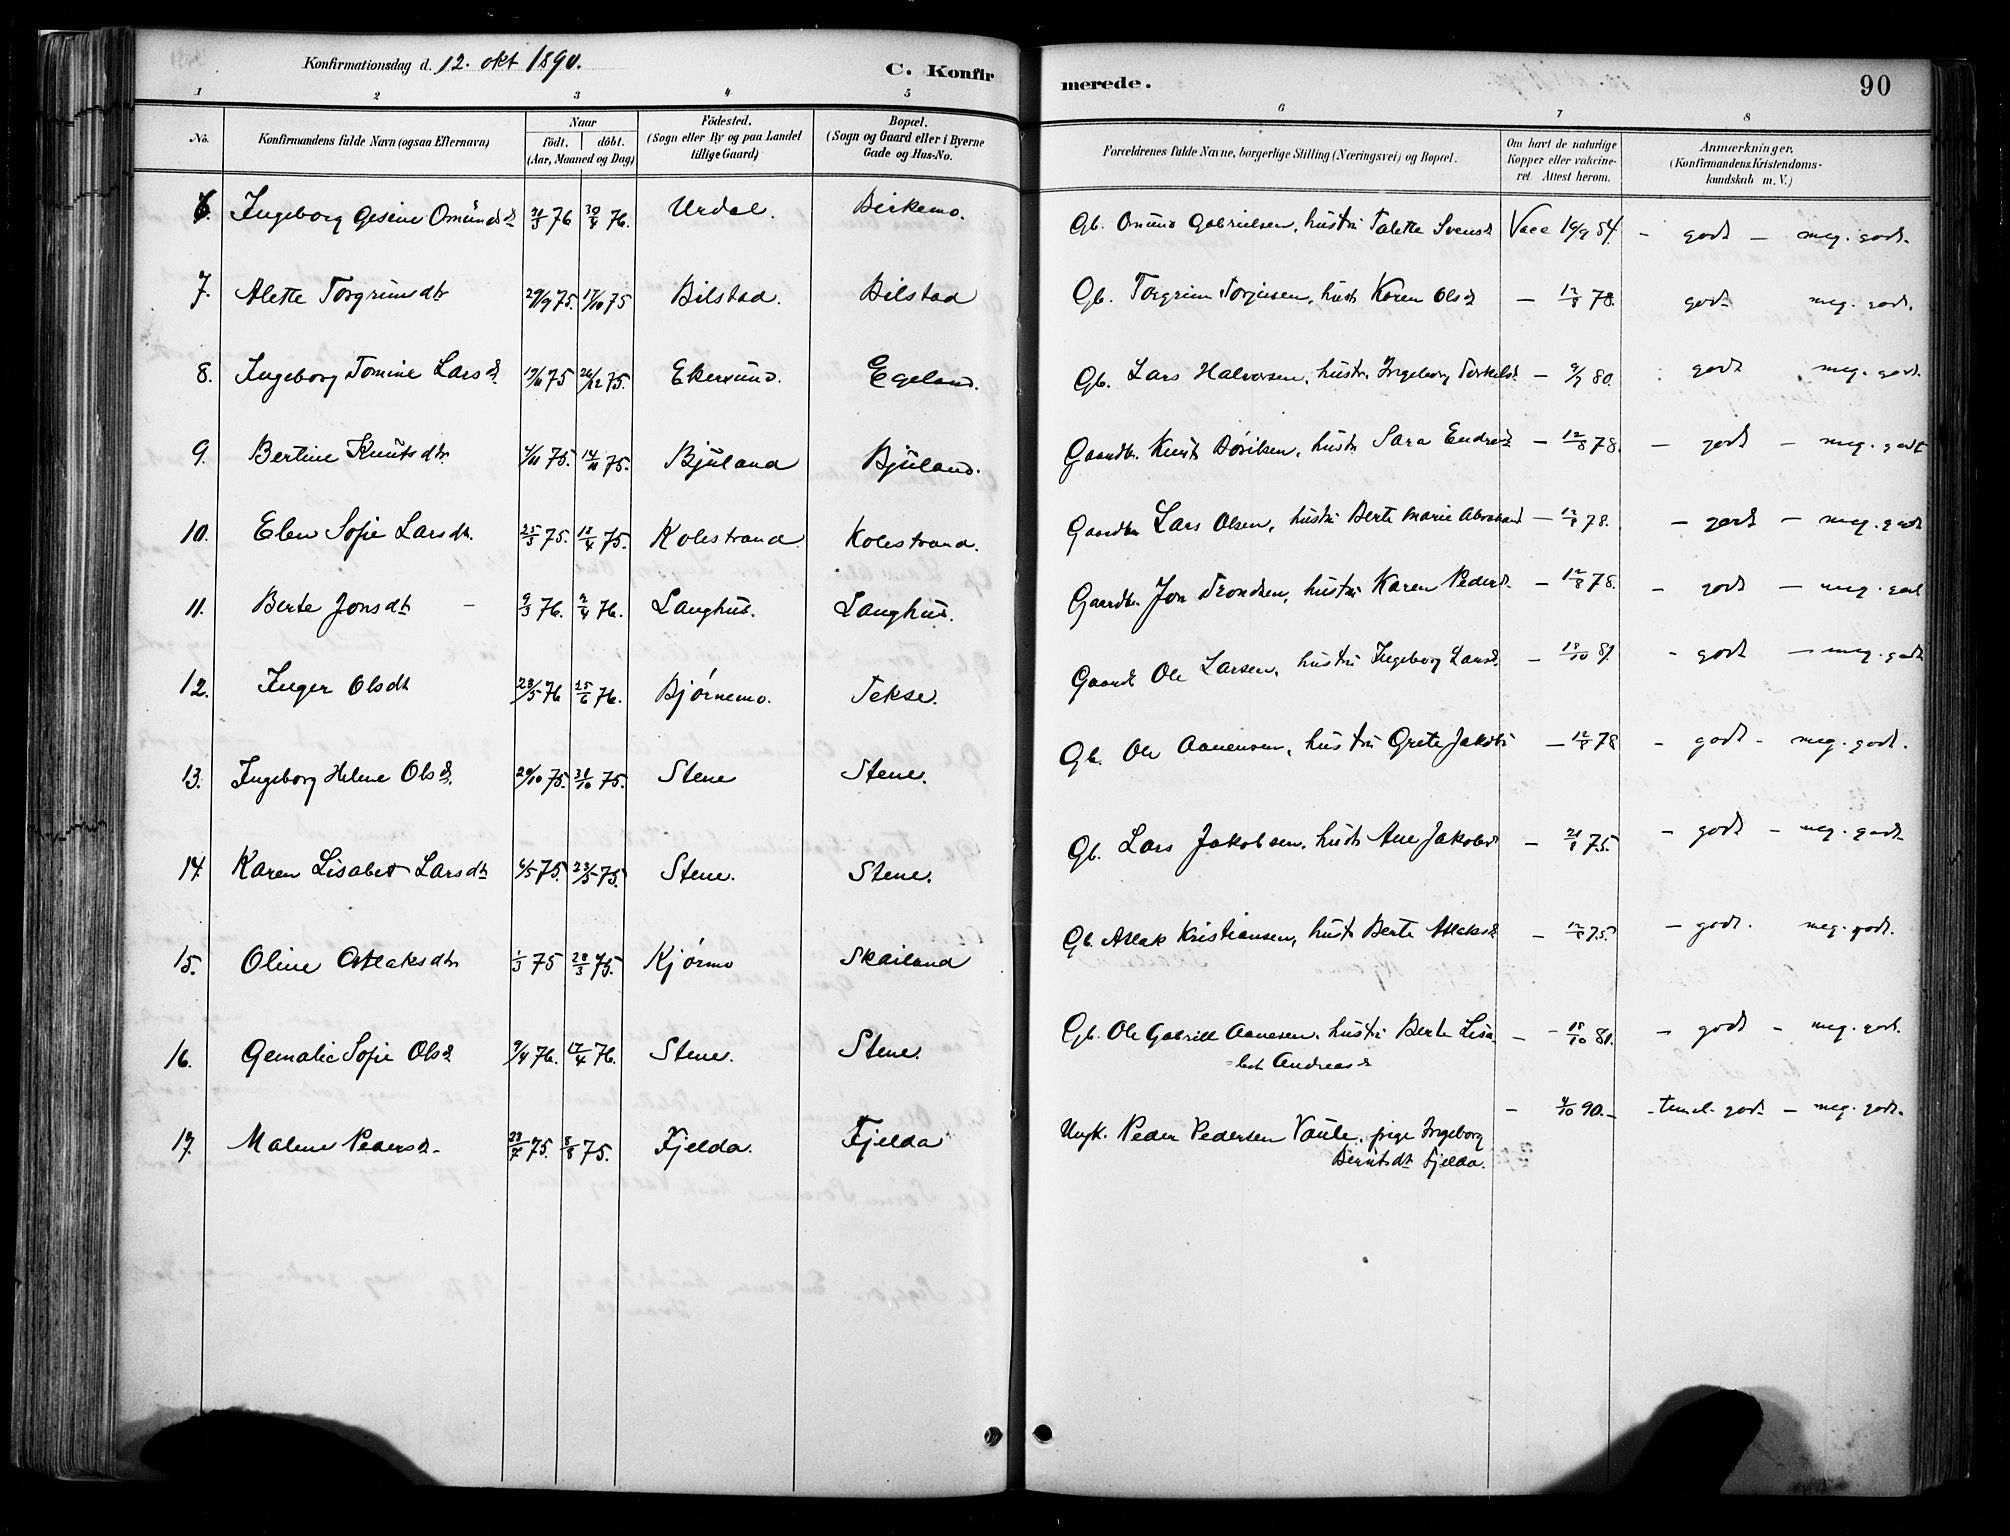 Konfirmationsdag d. 12. okt 1890.
C. Konfir
merede.
90
1 2 3 4 5 6 7 8
No.
Konfirmandens fulde Navn (ogsaa Efternavn)
Naar
födt. döbt.
(Aar, Maaned og Dag)
Födested.
(Sogn eller By og paa Landet
tillige Gaard)
Bopæl.
(Sogn og Gaard eller i Byerne
Gade og Hus-No.
Forældrenes fulde Navne, borgerlige Stilling (Næringsvei) og Bopæl.
Om havt de naturlige
Kopper eller vakcine-
ret. Attest herom.
Anmærkninger,
(Konfirmandens Kristendoms-
kundskab m. V.)
6. Ingeborg Gesine Omundsdt 76 76. Urdal. Birkemo. Gb. Omund Gabrielsen, hustru Talette Svensd Vacc 19/9 84. - godt - meg. godt.
7. Alette Torgrimsdtr 29/9 75. 17/10 75 Bilstad. Bilstad Gb. Torgrim Torjusen, hust Karen Olsd - 12/8 78. godt meg. godt.
8. Ingeborg Tomine Larsd. 75 26/12 75. Ekersund. Egeland. Gb. Lars Halvorsen, hustr. Ingeborg Torkelsd. - 9/9 80. godt meg. godt.
9. Bertine Knutsdtr. 4/11 75. 14/11 75. Bjuland Bjuland. Gaardbr. Knut hustr Sara Endresd - 12/8 78. - godt - meg. godt
10. Elen Sofie Larsdt. 25/3 75. 18/4 75. Kolestrand Kolestrand. Gaardbr Lars Olsen, hustru Berte Marie Abrahamsd - 12/8 78. - godt - meg. godt
11. Berte Jonsdt 9/3 76. 2/4 76. Langhus. Langhus. Gaardbr. Jon Trondsen, hustru Karen Pedersd. - 12/8 78. - godt - meg. godt
12. Inger Olsdt 28/5 76 25/6 76. Bjørnemo. Tekse. Gaardb Ole Larsen, hustru Ingeborg Larsd. - 18/10 81. - godt - meg. godt
13. Ingeborg Helene Olsd. 20/10 75. 31/10 75. Stene Stene. Gb. Ole Aanensen, hustru Grete Jakobs - 12/8 78 - godt - meg. godt.
14. Karen Lisabet Larsdt 6/5 75. 23/5 75. Stene. Stene. Gb. Lars Jakobsen, hustr Ane Jakobsd - 21/8 75. - godt - meg. godt
15. Oline Atlaksdtr 1/3 75 28/3 75. Kjørmo Skailand Gb. Atlak Kristiansen, hustr Berte Atlaksd - 12/8 75. - godt. meg. godt.
16. Gemalie Sofie Olsd 9/4 76. 17/4 76. Stene. Stene. Gb. Ole Gabriell Aanesen, hustru Berte Lisa - 18/10 81. - godt - meg. godt.
=bet Andreasd
17. Malene Pedersd. 23/7 75. 8/8 75. Fjelda. Fjelda Ungk. Peder Pedersen Vaule, pige Ingeborg - 4/10 90. - temel. godt - meg. godt.
Berntsdt Fjelda.